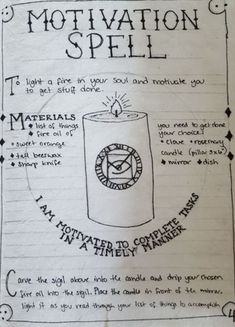 MOTIVATION
SPELL
To light a fire in your soul and motivate you
to get stuff done.
MATERIALS
• list of things you need to get done
• fire oil of your choice:
• sweet orange • clove • rosemary
• tall beeswax candle (pillar
• sharp knife • mirror • dish
I AM MOTIVATED TO COMPLETE TASKS
IN A TIMELY MANNER
Carve the sigil above into the candle and drip your chosen
fire oil into the sigil. Place the candle in front of the mirror
light it as you read through your list of things to accomplish